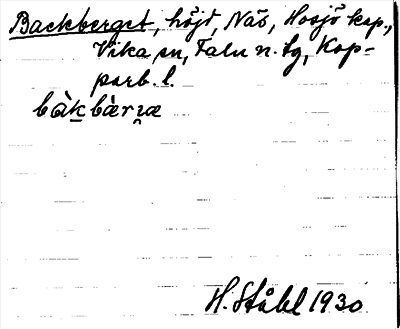 Backberget, höjd, Näs, Hosjö kap.,
Vika sn, Falu n. tg, Kop-
parb. l.
bàk̠bærɪ̯æ
H. Ståhl 1930